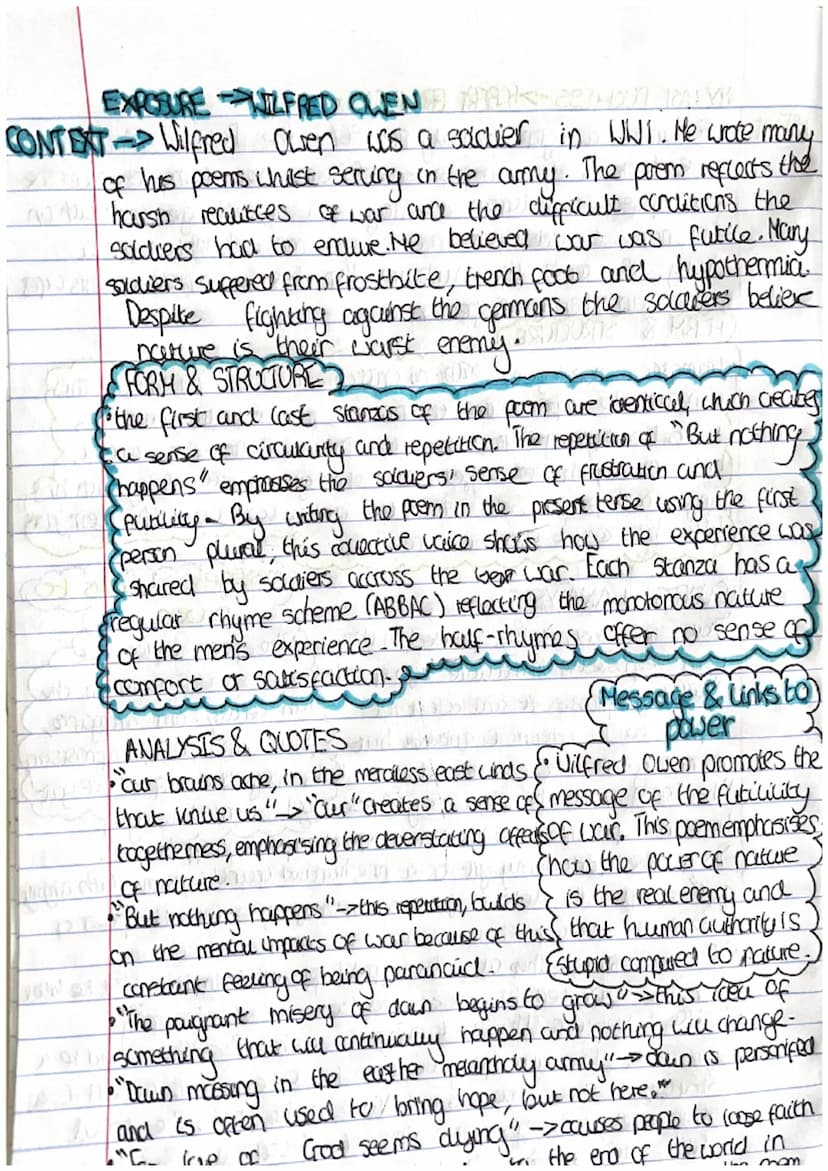 EXPOSURE → WILFRED OWEN
CONTEXT → Wilfred Owen was a soldier in WW1. He wrote many
of his poems whilst serving in the army. The poem reflects the
harsh realities of war and the difficult conditions the
soldiers had to endure. He believed war was futile. Many
soldiers suffered from frostbite, trench foot and hypothermia.
Despite fighting against the germans the soldiers believe
nature is their worst enemy.
FORM & STRUCTURE
• the first and last stanzas of the poem are identical, which creates
a sense of circularity and repetition. The repetition of "But nothing
happens" emphasises the soldiers' sense of frustration and
futility. By writing the poem in the present tense using the first
person plural, this collective voice shows how the experience was
shared by soldiers accross the war. Each stanza has a
regular rhyme scheme (ABBAC) reflecting the monotonous nature
of the men's experience. The half-rhymes offer no sense of
comfort or satisfaction.
ANALYSIS & QUOTES
• "our brains ache, in the merciless east winds
that knive us" → "our" creates a sense of
togetherness, emphasising the deverstating affects
of nature.
• "But nothing happens" → this repetition, builds
on the mental impacts of war because of this
constant feeling of being paranoid.
Message & links to
power
• Wilfred Owen promotes the
message of the futility
of war. This poem emphasises
how the power of nature
is the real enemy and
that human authority is
stupid compared to nature.
• "The poignant misery of dawn begins to grow" → this idea of
something that will continually happen and nothing will change.
• "Dawn massing in the east her melancholy army" → dawn is personified
and is often used to bring hope, but not here.
love of God seems dying" → causes people to loose faith
the end of the world in